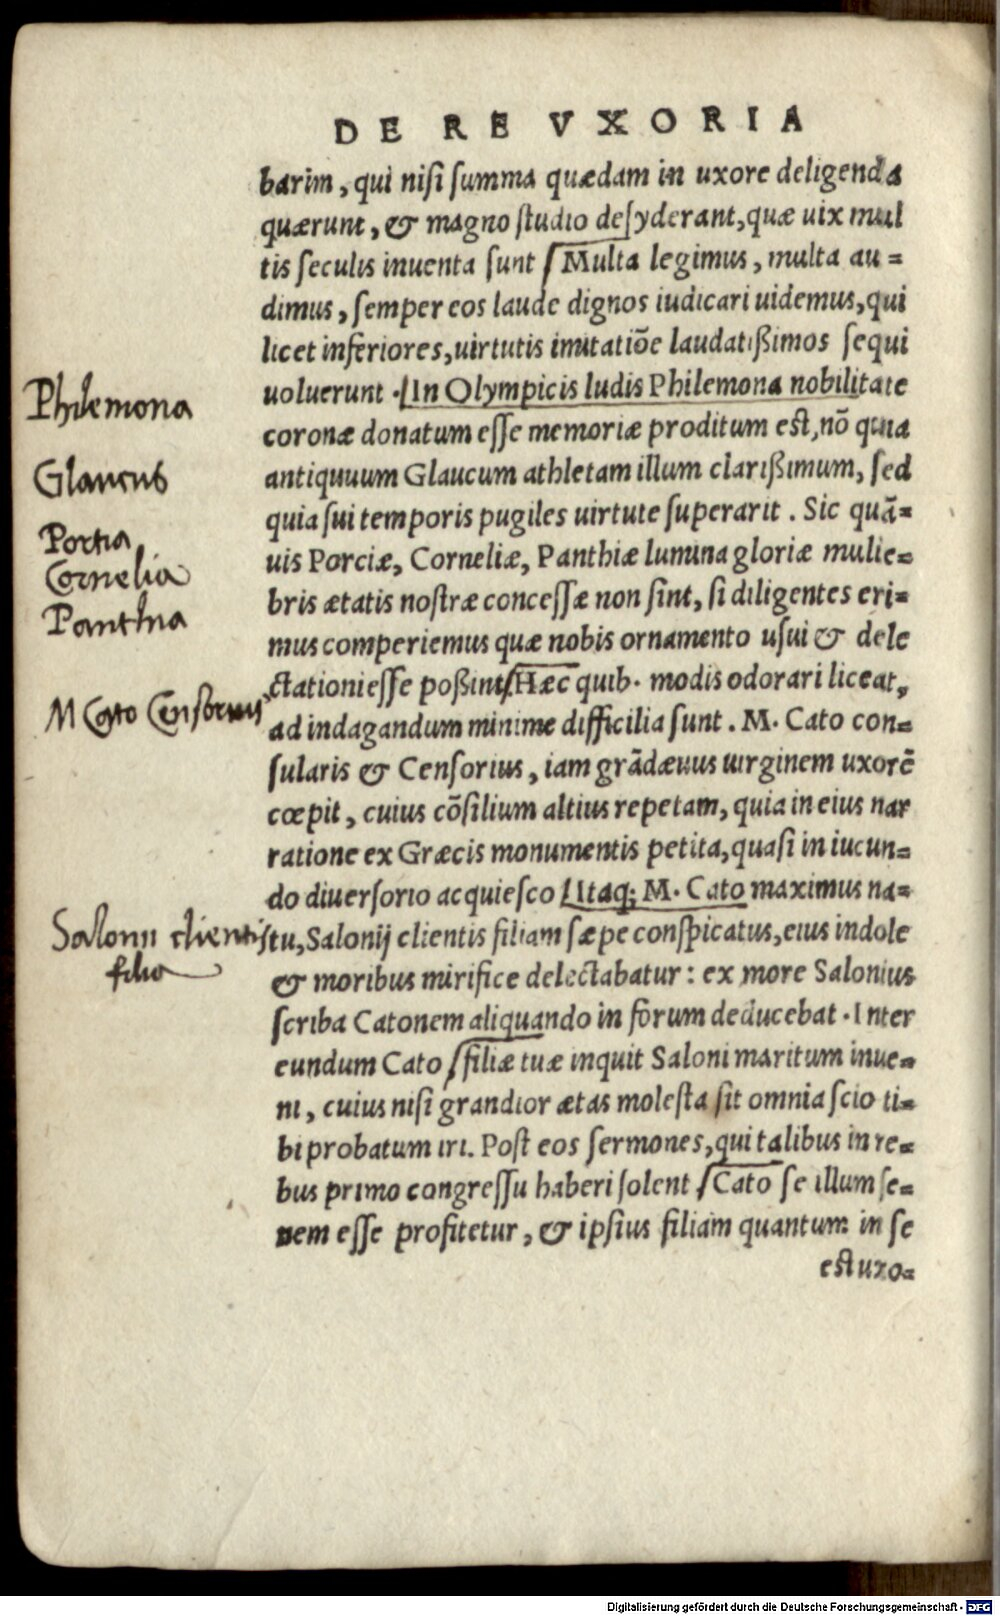 DE RE VXORIA
barim, qui nisi summa quædam in uxore deligenda
quærunt, & magno studio desyderant, quæ uix mul
tis seculis inuenta sunt Multa legimus, multa au=
dimus, semper eos laude dignos iudicari uidemus, qui
licet inferiores, uirtutis imitatiõe laudatißimos sequi
uoluerunt . In Olympicis ludis Philemona nobilitate
Philemona
coronæ donatum esse memoriæ proditum est, nõ quia
antiquuum Glaucum athletam illum clarißimum, sed
Glaucus
quia sui temporis pugiles uirtute superarit . Sic quã=
Portia
uis Porciæ, Corneliæ, Panthiæ lumina gloriæ mulie=
Cornelia
bris ætatis nostræ concessæ non sint, si diligentes eri=
Panthia
mus comperiemus quæ nobis ornamento usui & dele
ctationi esse poßint Hæc quib. modis odorari liceat,
M Cato Censorius
ad indagandum minime difficilia sunt . M. Cato con=
sularis & Censorius, iam grãdæuus uirginem uxorẽ
cœpit, cuius cõsilium altius repetam, quia in eius nar
ratione ex Græcis monumentis petita, quasi in iucun=
do diuersorio acquiesco Itaq; M. Cato maximus na=
Salonii clientis
tu, Salonij clientis filiam sæpe conspicatus, eius indole
filia
& moribus mirifice delectabatur : ex more Salonius
scriba Catonem aliquando in forum deducebat . Inter
eundum Cato filiæ tuæ inquit Saloni maritum inue=
ni, cuius nisi grandior ætas molesta sit omnia scio ti=
bi probatum iri. Post eos sermones, qui talibus in re=
bus primo congressu haberi solent Cato se illum se=
nem esse profitetur, & ipsius filiam quantum in se
est uxo=
Digitalisierung gefördert durch die Deutsche Forschungsgemeinschaft - DFG